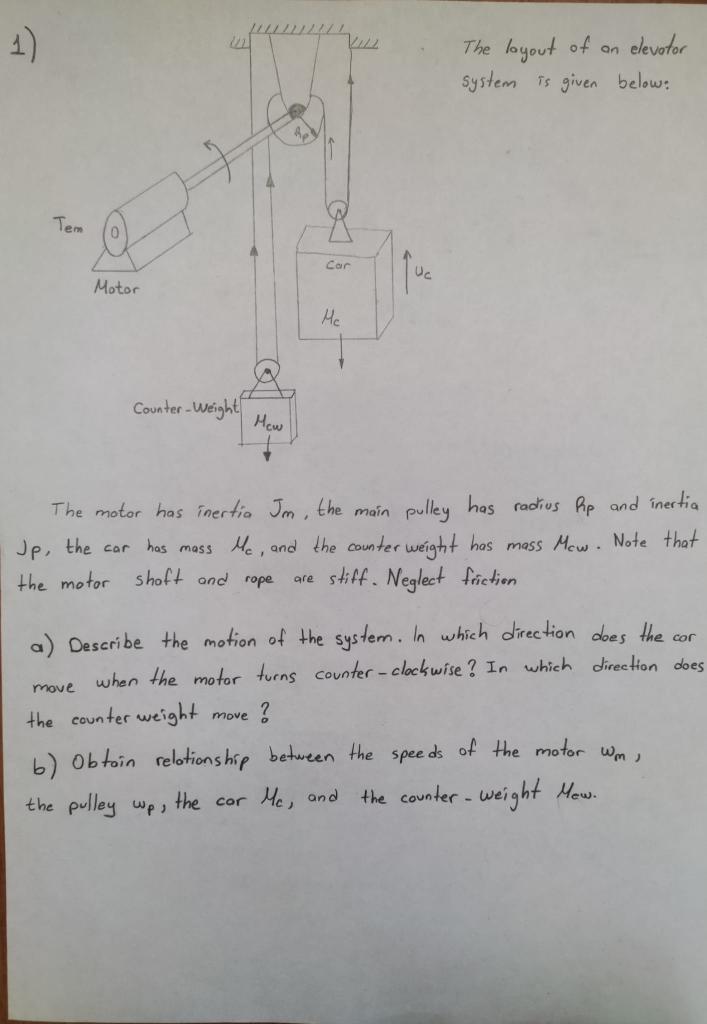 1)
The layout of an elevator
system is given below:
Rp
Tem
Motor
Car
Uc
Mc
Counter-Weight
Mcw
The motor has inertia Jm, the main pulley has radius Rp and inertia
Jp, the car has mass Mc, and the counter weight has mass Mcw. Note that
the motor shaft and rope are stiff. Neglect friction
a) Describe the motion of the system. In which direction does the car
move when the motor turns counter-clockwise? In which direction does
the counter weight move?
b) Obtain relationship between the speeds of the motor wm,
the pulley wp, the car Mc, and the counter-weight Mcw.